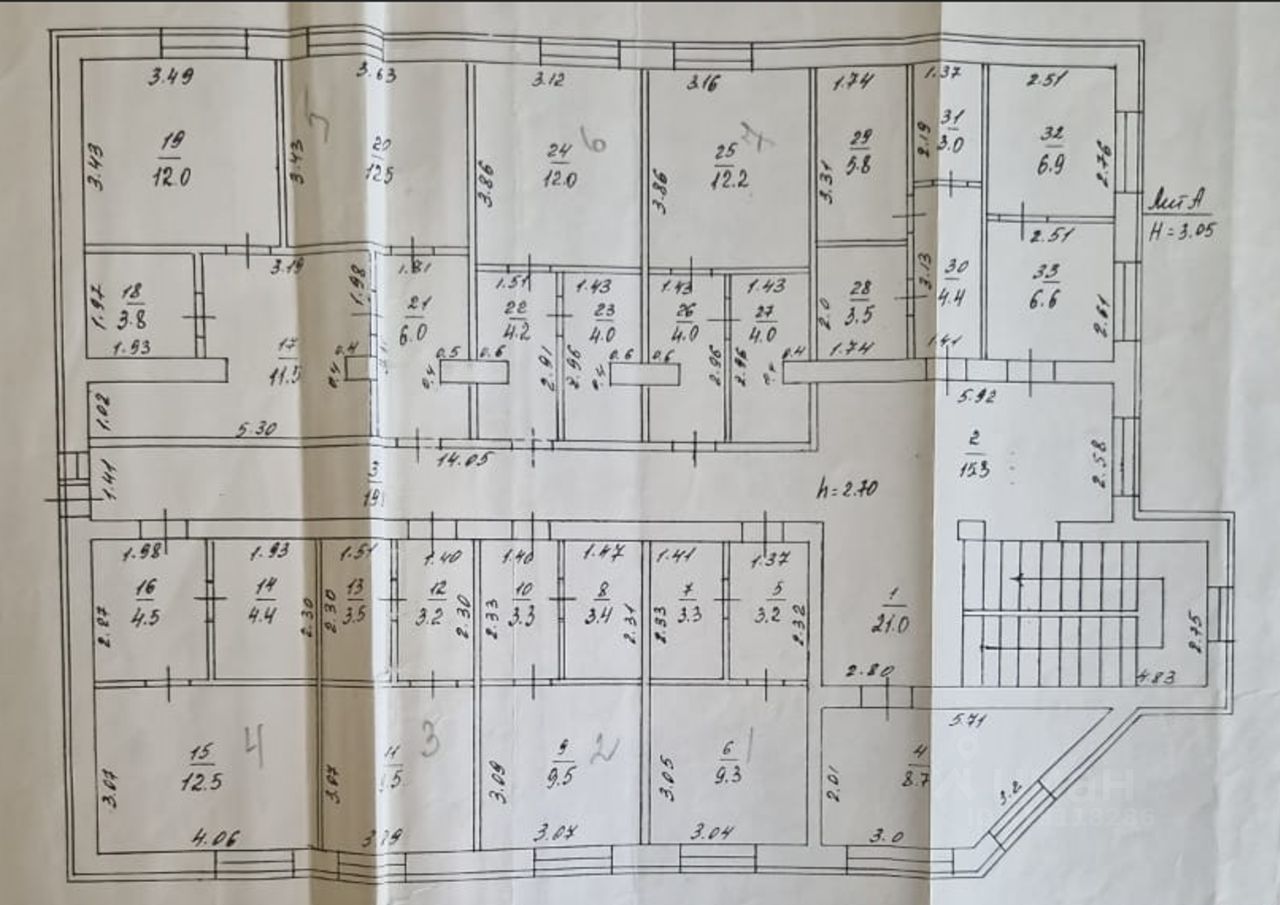 3.49
3.63
3.12
3.16
1.74
1.37
2.51
3.43
19
12.0
3.43
5
20
12.5
3.86
24
12.0
6
3.86
25
12.2
7
3.31
29
5.8
2.19
31
3.0
32
6.9
2.76
Лит А
H=3.05
1.97
18
3.8
1.93
3.19
17
11.5
1.98
1.81
21
6.0
1.51
22
4.2
2.91
1.43
23
4.0
2.96
1.43
26
4.0
2.96
1.43
27
4.0
2.96
2.0
28
3.5
1.74
3.13
30
4.4
1.41
2.51
33
6.6
2.61
0.4
0.4
0.5
0.4
0.6
0.6
0.4
0.6
0.4
1.02
5.30
5.92
2
15.3
2.58
1.41
14.05
3
h=2.70
1.98
16
4.5
2.27
1.93
14
4.4
2.30
1.51
13
3.5
2.30
1.40
12
3.2
2.30
1.40
10
3.3
2.33
1.47
8
3.4
2.31
1.41
7
3.3
2.33
1.37
5
3.2
2.32
1
21.0
2.80
2.75
4.83
5.71
15
12.5
4
3.07
4.06
11
3
3.07
9
9.5
2
3.09
3.07
6
9.3
1
3.05
3.04
4
8.7
2.01
3.0
3.2